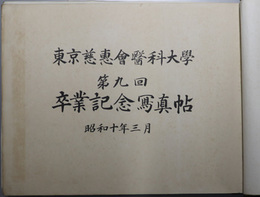 東京慈惠會醫科大學
第九回
卒業記念寫真帖
昭和十年三月